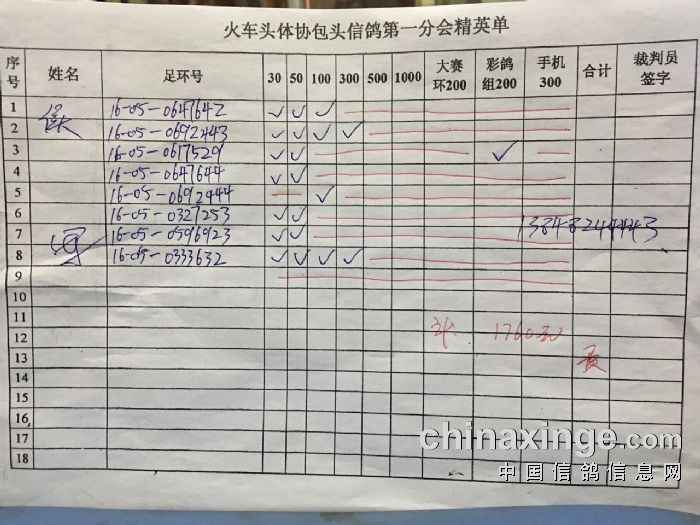 火车头体协包头信鸽第一分会精英单
序号 姓名 足环号 30 50 100 300 500 1000 大赛环200 彩鸽组200 手机300 合计 裁判员签字
1 16-05-0647642 ✓ ✓ ✓
2 16-05-0692443 ✓ ✓ ✓ ✓
3 16-05-0617529 ✓ ✓ ✓
4 16-05-0647644 ✓ ✓
5 16-05-0692444 ✓
6 16-05-0327253 ✓ ✓
7 16-05-0596923 ✓ ✓
8 16-05-0333632 ✓ ✓ ✓ ✓
9
10
11
12
13
14
15
16
17
18
chinaxinge.com
中国信鸽信息网